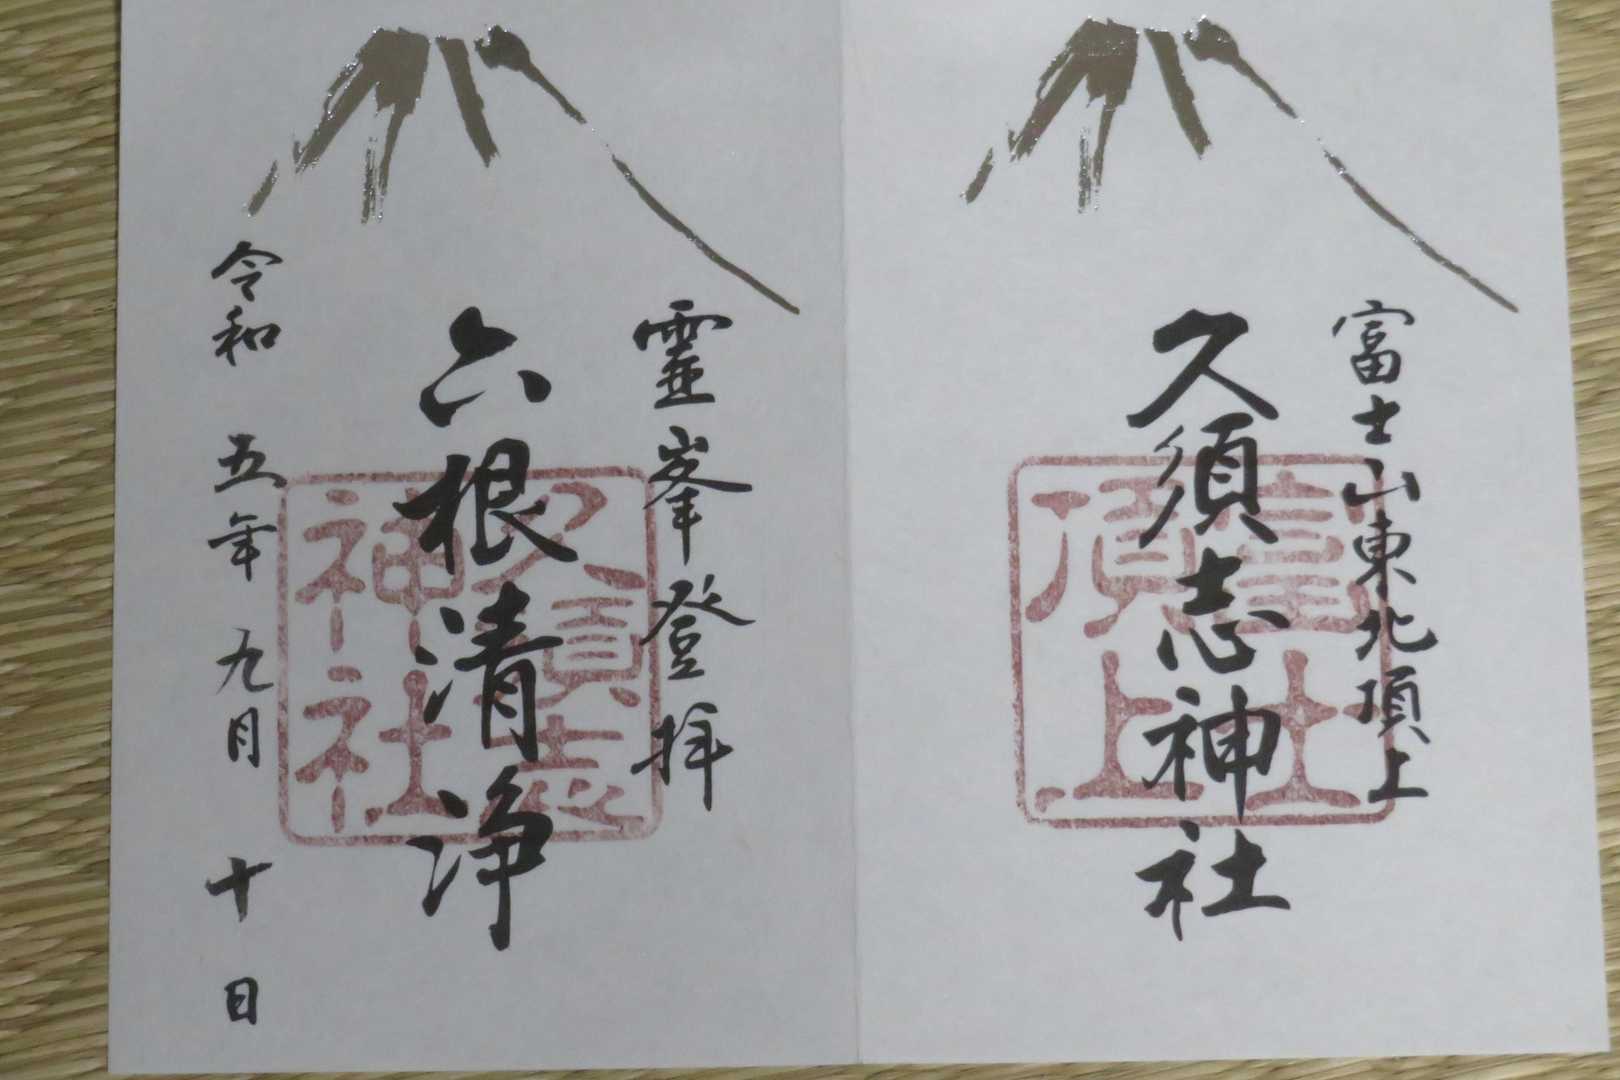 富士山東北頂上
久須志神社
富士
頂上
靈峯登拝
六根清浄
久須志
神社
令和五年九月十日